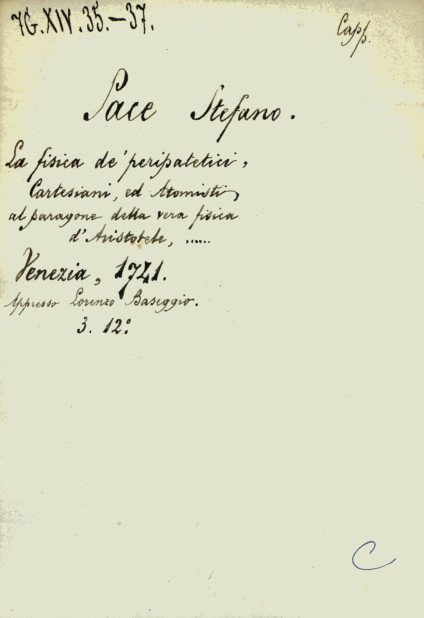 7G.XIV.35.—37.
Capp.
Pace Stefano.
La fisica de' peripatetici,
Cartesiani, ed Atomisti,
al paragone della vera fisica
d'Aristotele, ......
Venezia, 1741.
Appresso Lorenzo Baseggio.
3. 12º
C